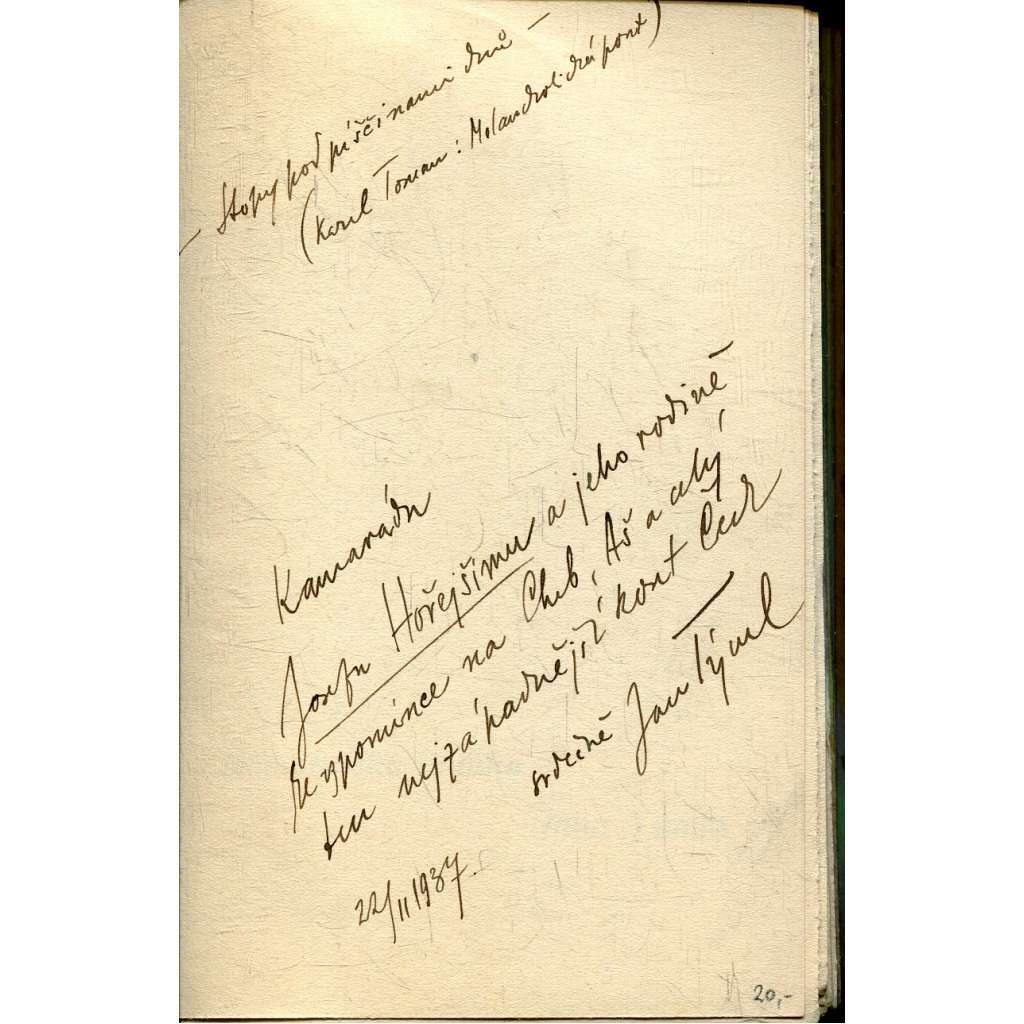 – stopy pod písčinami dnů –
(Karel Toman: Melancholická pout)
Kamarádu
Josefu Hořejšímu a jeho rodině
ke vzpomínce na Cheb, Aš a celý
ten nejzápadnější kout Čech
srdečně Jan Týml
22/II 1937.
20,-